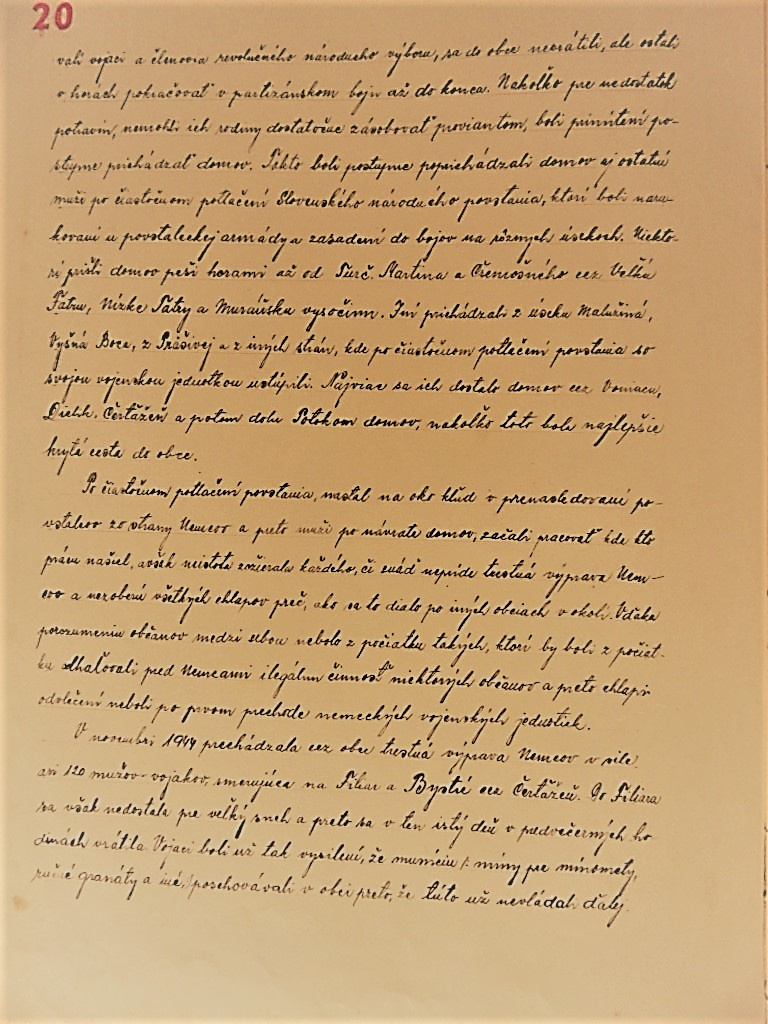 20
vali vojaci a členovia revolučného národného výboru, sa do obce nevrátili, ale ostali
v horách pokračovať v partizánskom boji až do konca. Nakoľko pre nedostatok
potravín, nemohli ich rodiny dostatočne zásobovať proviantom, boli prinútení po-
stupne prichádzať domov. Takto boli postupne poprichádzali domov aj ostatní
muži po čiastočnom potlačení Slovenského národného povstania, ktorí boli naru-
kovaní u povstaleckej armády a zasadení do bojov na rôznych úsekoch. Niekto-
rí prišli domov peši horami až od Turč. Martina a Čremošného cez Veľkú
Fatru, Nízke Tatry a Muráňsku vysočinu. Iní prichádzali z úseku Malužiná,
Vyšná Boca, z Prašivej a z iných strán, kde po čiastočnom potlačení povstania so
svojou vojenskou jednotkou ustúpili. Najviac sa ich dostalo domov cez
Čertažeň a potom dolu Potokom domov, nakoľko toto bola najlepšie
krytá cesta do obce.
Po čiastočnom potlačení povstania, nastal na oko kľud v prenasledovaní po-
vstalcov zo strany Nemcov a preto muži po návrate domov, začali pracovať kde kto
prácu našiel, avšak neistota zožierala každého, či snáď nepríde trestná výprava Nem-
cov a nezoberú všetkých chlapov preč, ako sa to dialo po iných obciach v okolí. Vďaka
porozumeniu občanov medzi sebou nebolo z počiatku takých, ktorí by boli z počiat-
ku odhaľovali pred Nemcami ilegálnu činnosť niektorých občanov a preto chlapi
odvlečení neboli po prvom prechode nemeckých vojenských jednotiek.
V novembri 1944 prechádzala cez obec trestná výprava Nemcov v sile
asi 120 mužov-vojakov, smerujúca na Filiar a Bystré cez Čertažeň. Do Filiara
sa však nedostala pre veľký sneh a preto sa v ten istý deň v podvečerných ho-
dinách vrátila. Vojaci boli už tak vysilení, že muníciu /: míny pre mínomety,
ručné granáty a iné, :/ poschovávali v obci preto, že túto už nevládali ďalej